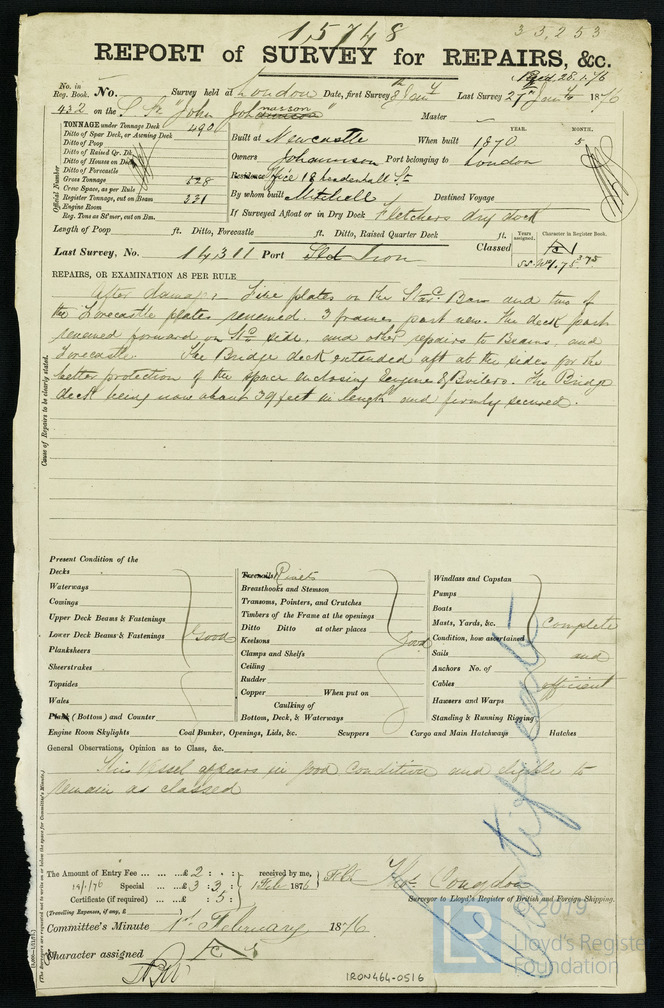 15748
35,253
REPORT of SURVEY for REPAIRS, &c.
No. in Reg. Book. No. Survey held at London Date, first Survey 8 Jany Last Survey 27 Jany 1876
432 on the S. Sr "John Johannsson" Master
TONNAGE under Tonnage Deck 490
Ditto of Spar Deck, or Awning Deck
Ditto of Poop
Ditto of Raised Qr. Dk.
Ditto of Houses on Dk.
Ditto of Forecastle
Gross Tonnage 528
Crew Space, as per Rule
Register Tonnage, cut on Beam 331
Engine Room
Reg. Tons as St'mer, cut on Bm.
Official Number
Built at Newcastle When built YEAR. 1870 MONTH. 5
Owners Johannson Port belonging to London
Residence Office 18 Leadenhall St
By whom built Mitchell Destined Voyage
If Surveyed Afloat or in Dry Dock Fletchers dry dock
Length of Poop ft. Ditto, Forecastle ft. Ditto, Raised Quarter Deck ft.
Last Survey, No. 14311 Port Iron Classed
Years assigned. Character in Register Book.
REPAIRS, OR EXAMINATION AS PER RULE
After damage: Five plates on the Starc. Bow and two of
the Forecastle plates renewed. 3 frames part new. The deck part
renewed forward on St. side, and other repairs to Beams, and
Forecastle. The Bridge deck extended aft at the sides for the
better protection of the space enclosing Engine & Boilers. The Bridge
deck being now about 39 feet in length and firmly secured.
Cause of Repairs to be clearly stated.
Present Condition of the
Decks
Waterways
Comings
Upper Deck Beams & Fastenings
Lower Deck Beams & Fastenings Good
Planksheers
Sheerstrakes
Topsides
Wales
Plank (Bottom) and Counter
Treenails Rivets
Breasthooks and Stemson
Transoms, Pointers, and Crutches
Timbers of the Frame at the openings
Ditto Ditto at other places
Keelsons Good
Clamps and Shelfs
Ceiling
Rudder
Copper When put on
Caulking of
Bottom, Deck, & Waterways
Windlass and Capstan
Pumps
Boats
Masts, Yards, &c. Complete
Condition, how ascertained
Sails and
Anchors No. of
Cables efficient
Hawsers and Warps
Standing & Running Rigging
Engine Room Skylights Coal Bunker, Openings, Lids, &c. Scuppers Cargo and Main Hatchways Hatches
General Observations, Opinion as to Class, &c.
This Vessel appears in good Condition and eligible to
remain as classed
Certificate
The Amount of Entry Fee £ 2 : : received by me,
19/1/76 Special £ 3 : 3 : 1 Feb 1876
Certificate (if required) £ : 5 :
(Travelling Expenses, if any, £ )
Thos. Congdon
Surveyor to Lloyd's Register of British and Foreign Shipping.
Committee's Minute 1st February 1876
Character assigned
IRON464-0516
© 2019
LR
Lloyd's Register
Foundation